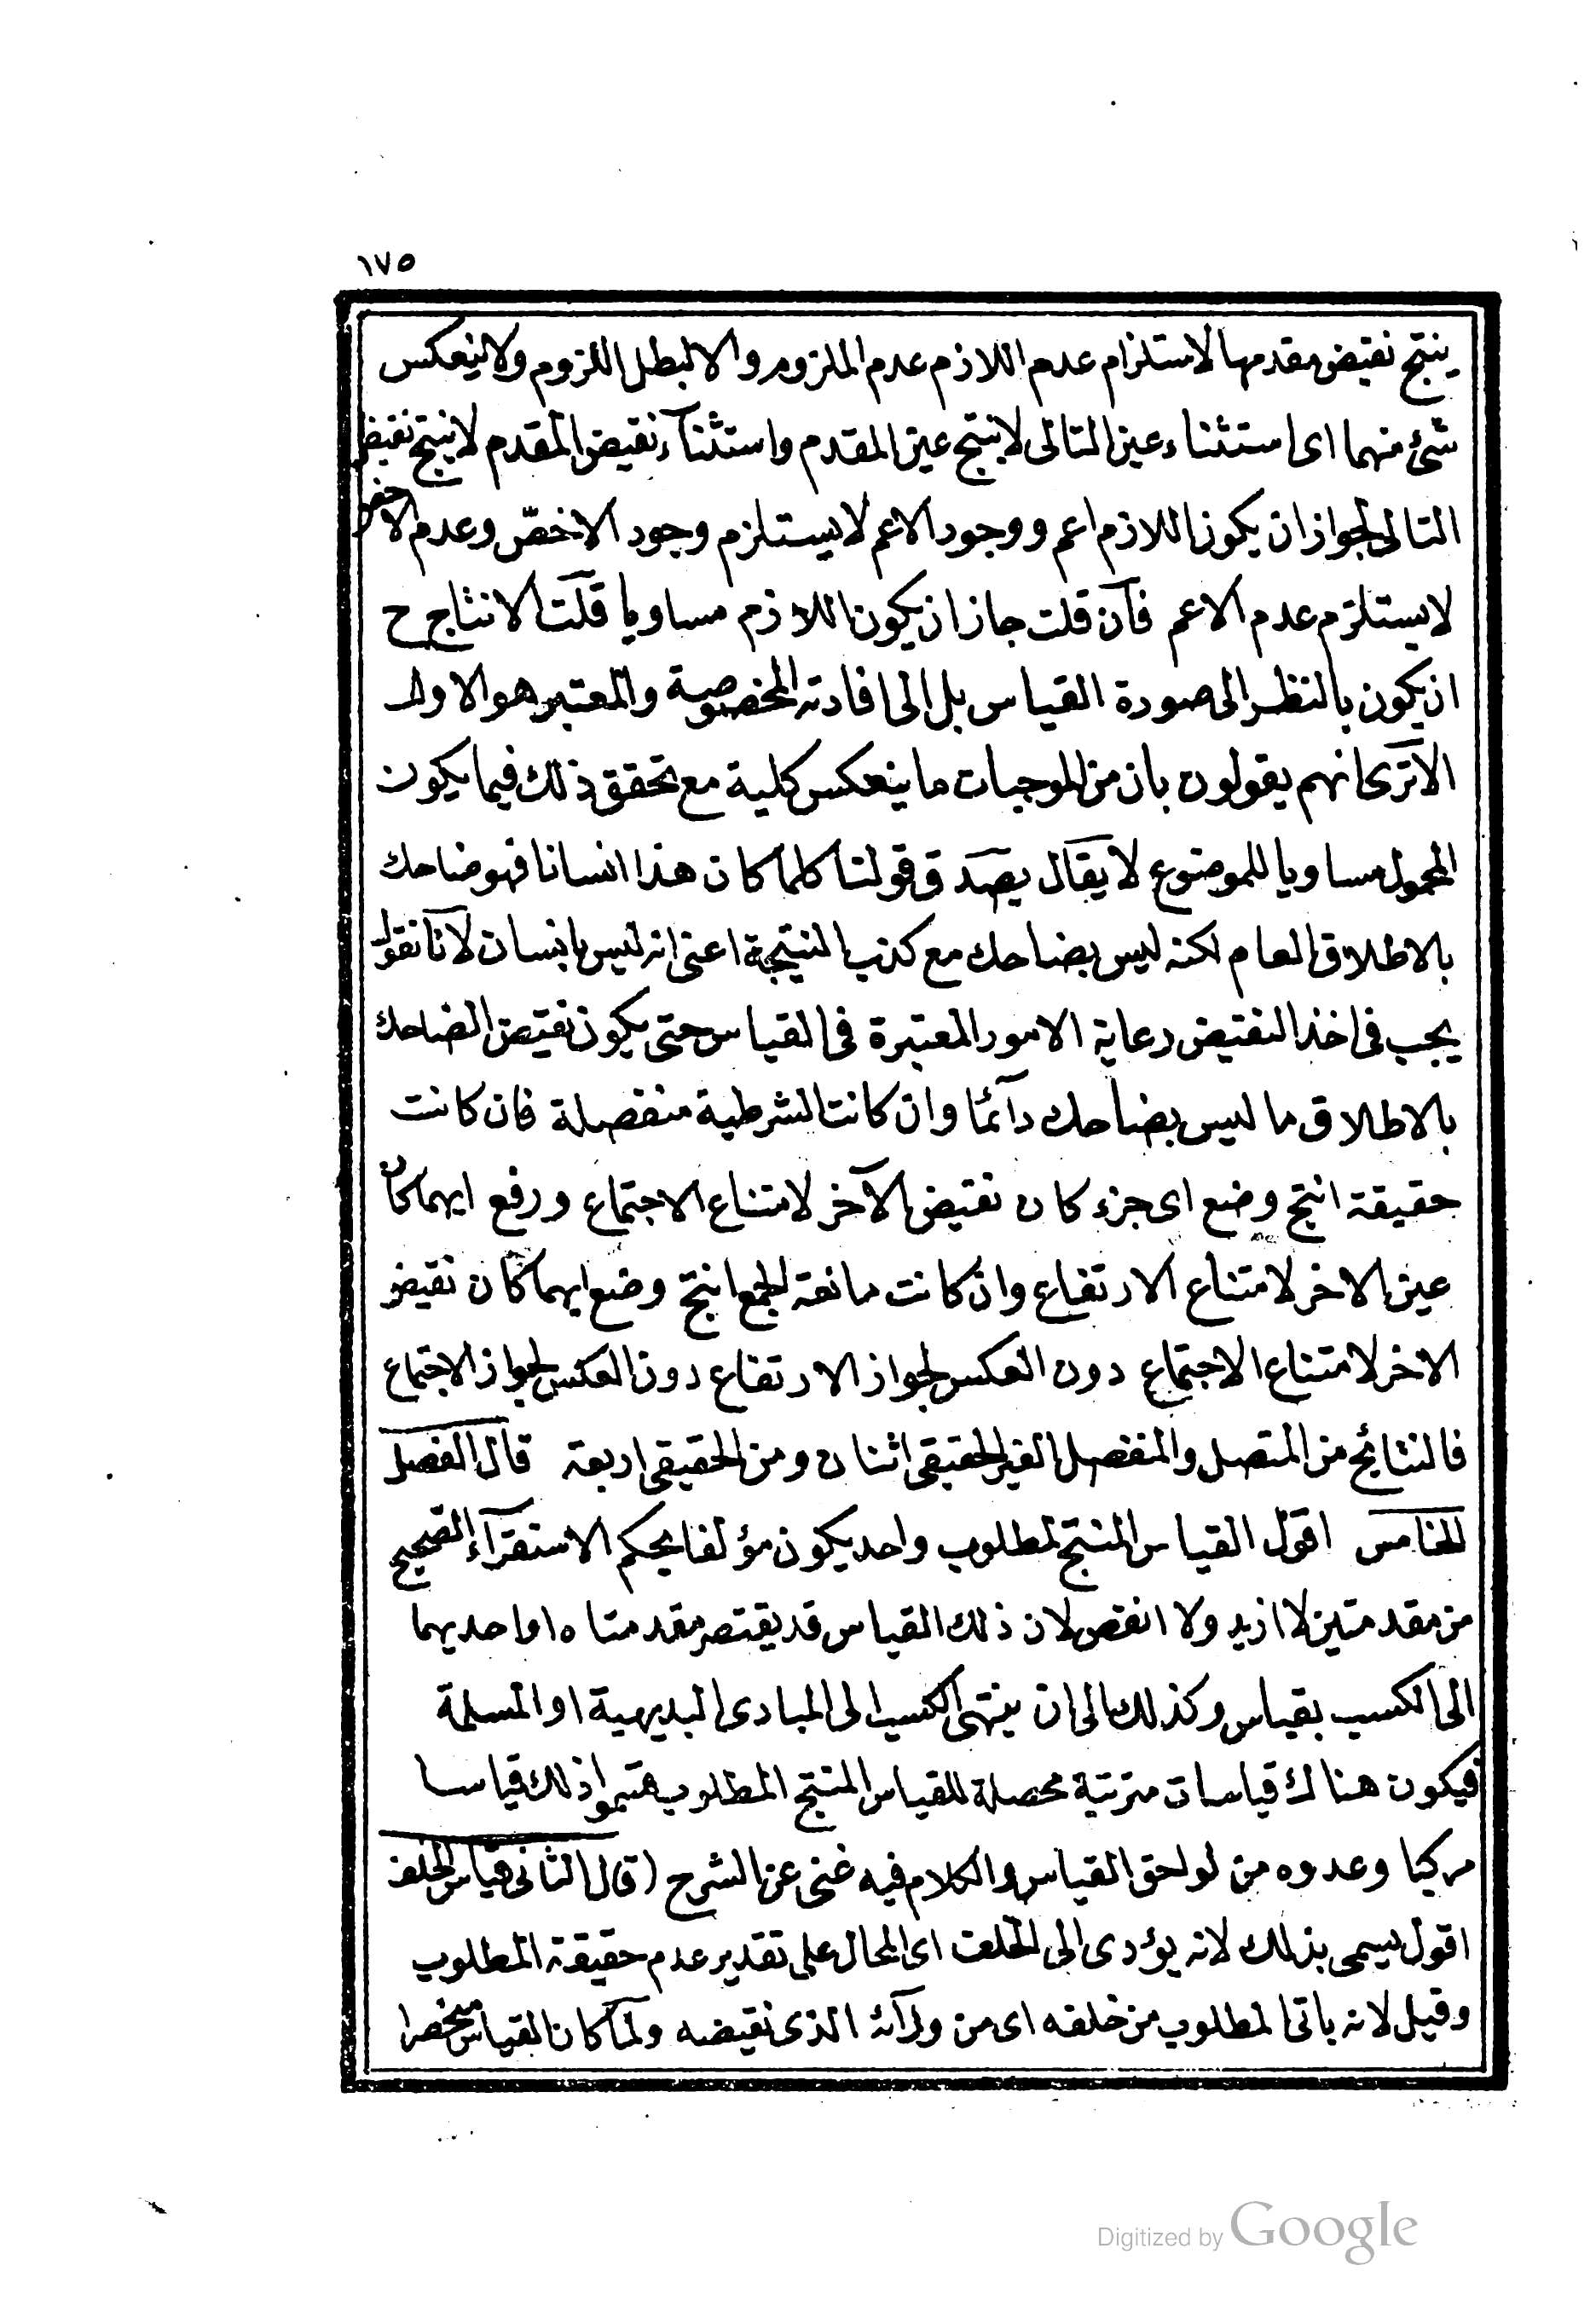 ١٧٥
ينتج نقيض مقدمها لاستلزام عدم اللازم عدم الملزوم والا لبطل اللزوم ولا ينعكس
شئ منهما اى استثناء عين التالى لا ينتج عين المقدم واستثنآء نقيض المقدم لا ينتج نقيض
التالى لجواز ان يكون اللازم اعم ووجود الاعم لا يستلزم وجود الاخصّ وعدم الاخص
لا يستلزم عدم الاعم فآن قلت جاز ان يكون اللازم مساويا قلت الانتاج ح
ان يكون بالنظر الى صورة القياس بل الى افادته المخصوصية والمعتبر هو الاول
الا ترى انهم يقولون بان من الموجبات ما ينعكس كلية مع تحقق ذلك فيما يكون
المحمول مساويا للموضوع لا يقال يصدق قولنا كلما كان هذا انسانا فهو ضاحك
بالاطلاق العام لكنه ليس بضاحك مع كذب النتيجة اعنى انه ليس بانسان لانا نقول
يجب فى اخذ النقيض رعاية الامور المعتبرة فى القياس حتى يكون نقيض الضاحك
بالاطلاق ما ليس بضاحك دآئما وان كانت الشرطية منفصلة فان كانت
حقيقة انتج وضع اى جزء كان نقيض الآخر لامتناع الاجتماع ورفع ايهما كان
عين الاخر لامتناع الارتفاع وان كانت مانعة الجمع انتج وضع ايهما كان نقيض
الاخر لامتناع الاجتماع دون العكس لجواز الارتفاع دون العكس لجواز الاجتماع
فالنتائج من المتصل والمنفصل الغير الحقيقى اثنان ومن الحقيقى اربعة قال الفصل
الخامس اقول القياس المنتج لمطلوب واحد يكون مؤلفا بحكم الاستقرآء الصحيح
من مقدمتين لا ازيد ولا انقص لان ذلك القياس قد يقتصر مقدمتاه او احديهما
الى الكسب بقياس وكذلك الى ان ينتهى الكسب الى المبادى البديهية او المسلمة
فيكون هناك قياسات مترتبة محصلة للقياس المنتج المطلوب فتموا ذلك قياسا
مركبا وعدوه من لواحق القياس والكلام فيه غنى عن الشرح (قال الثانى قياس الخلف
اقول يسمى بذلك لانه يؤدى الى الخلف اى المحال على تقدير عدم حقيقة المطلوب
وقيل لانه ياتى المطلوب من خلفه اى من ورآئه الذى نقيضه ولمآ كان القياس منحصرا
Digitized by Google